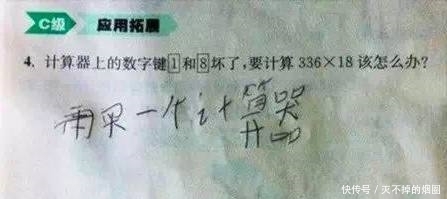 C级 应用拓展
4. 计算器上的数字键1和8坏了,要计算336×18该怎么办?
再买一个计算器
快传号/灭不掉的烟圈